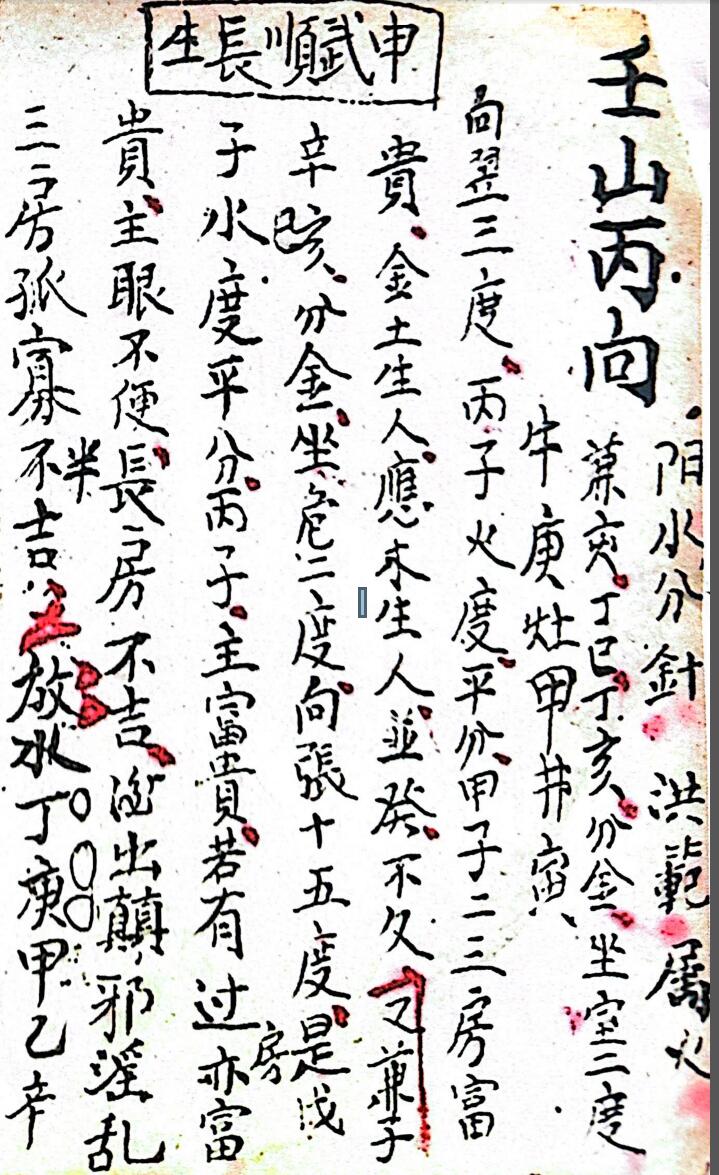 申賦順長生
壬山丙向
阳水分針 洪範屬火
兼亥丁巳丁亥分金坐室三度
牛庚灶甲井寅
向翌三度丙子火度平分甲子二三房富
貴金土生人應木生人並發不久又兼子
辛巳亥分金坐危二度向張十五度是戊
子水度平分丙子主富貴若有过房亦富
貴主眼不便長房不吉出顛邪淫乱
三房孤寡半不吉放水丁庚甲乙辛